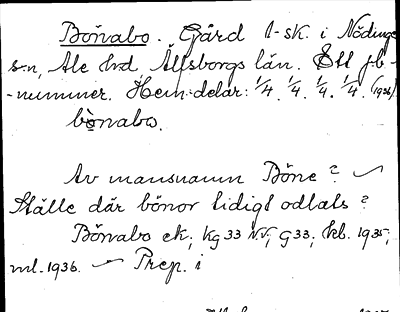 Bönabo. Gård 1-sk. i Nödinge
s:n, Ale hd Älfsborgs län. Ett jb-
-nummer. Hem.delar: 1/4. 1/4. 1/4. 1/4. (1936)
bönabo.
Av mansnamn Böne?
Ställe där bönor tidigt odlats?
Bönabo ek; Kg 33 NV; G 33; kb. 1935;
ml. 1936. — Prep. i